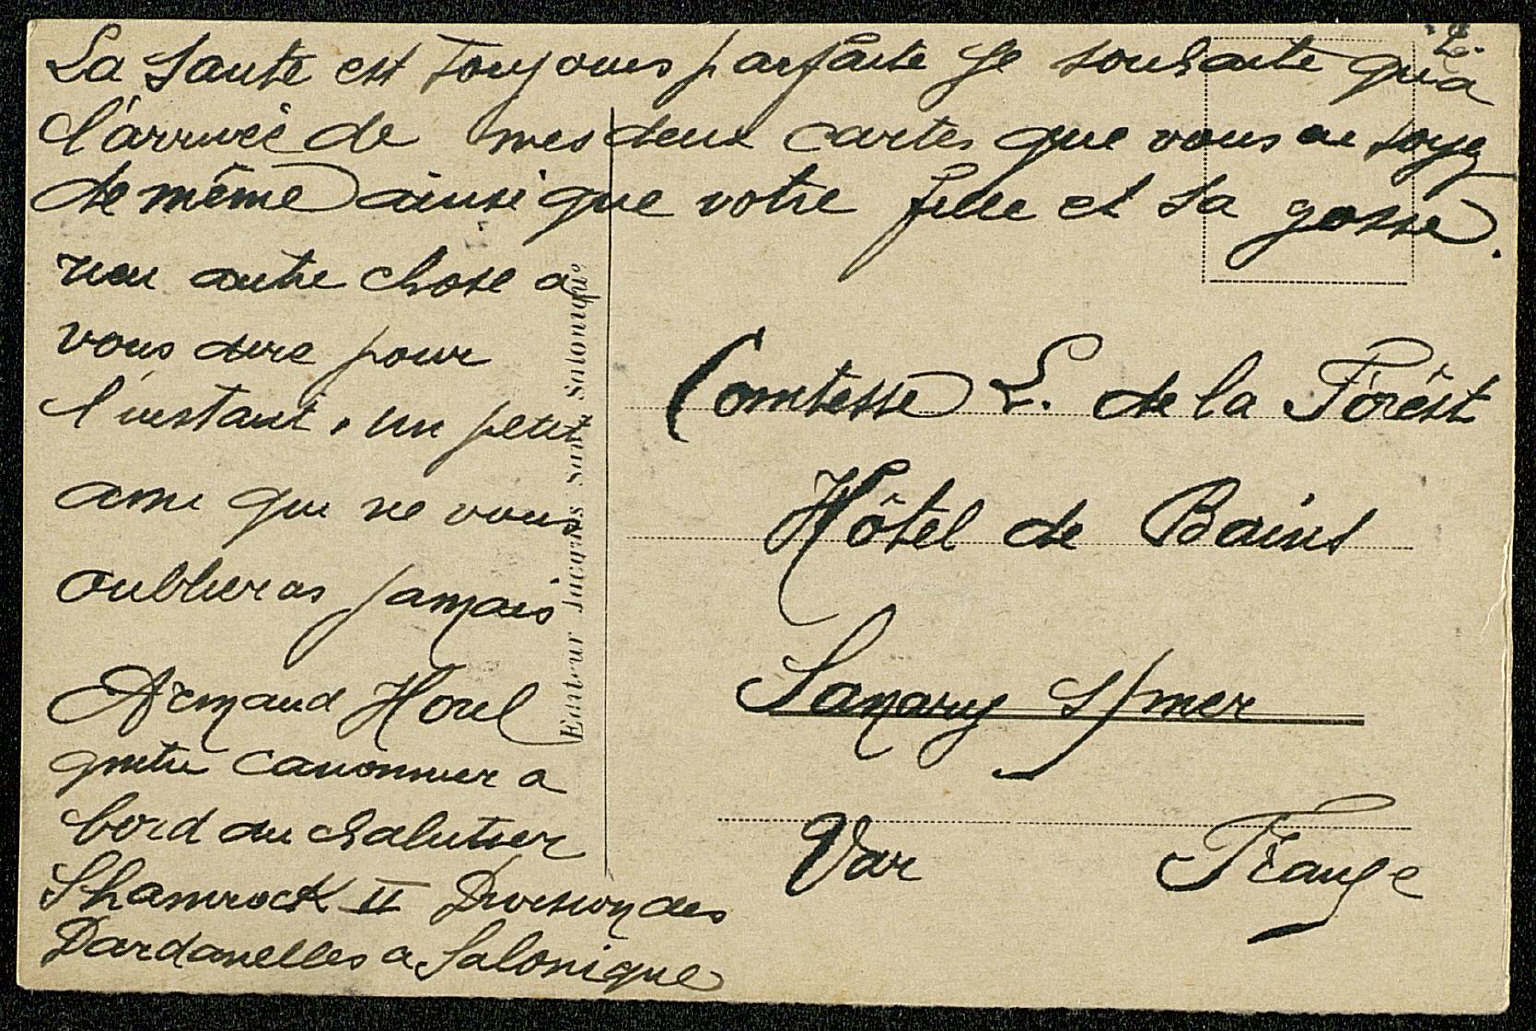 2.
La Santé est toujours parfaite Je souhaite qu'a
l'arrivée de mes deux cartes que vous en soyez
de même ainsi que votre fille et sa gosse.
rien autre chose a
vous dire pour
l'instant. un petit
ami qui ne vous
oublieras jamais
Armand Houel
canonnier a
bord du chalutier
Shamrock II Division des
Dardanelles a Salonique
Editeur Jacques Salonique
Comtesse L. de la Forest
Hôtel de Bains
Sanary s/mer
Var France